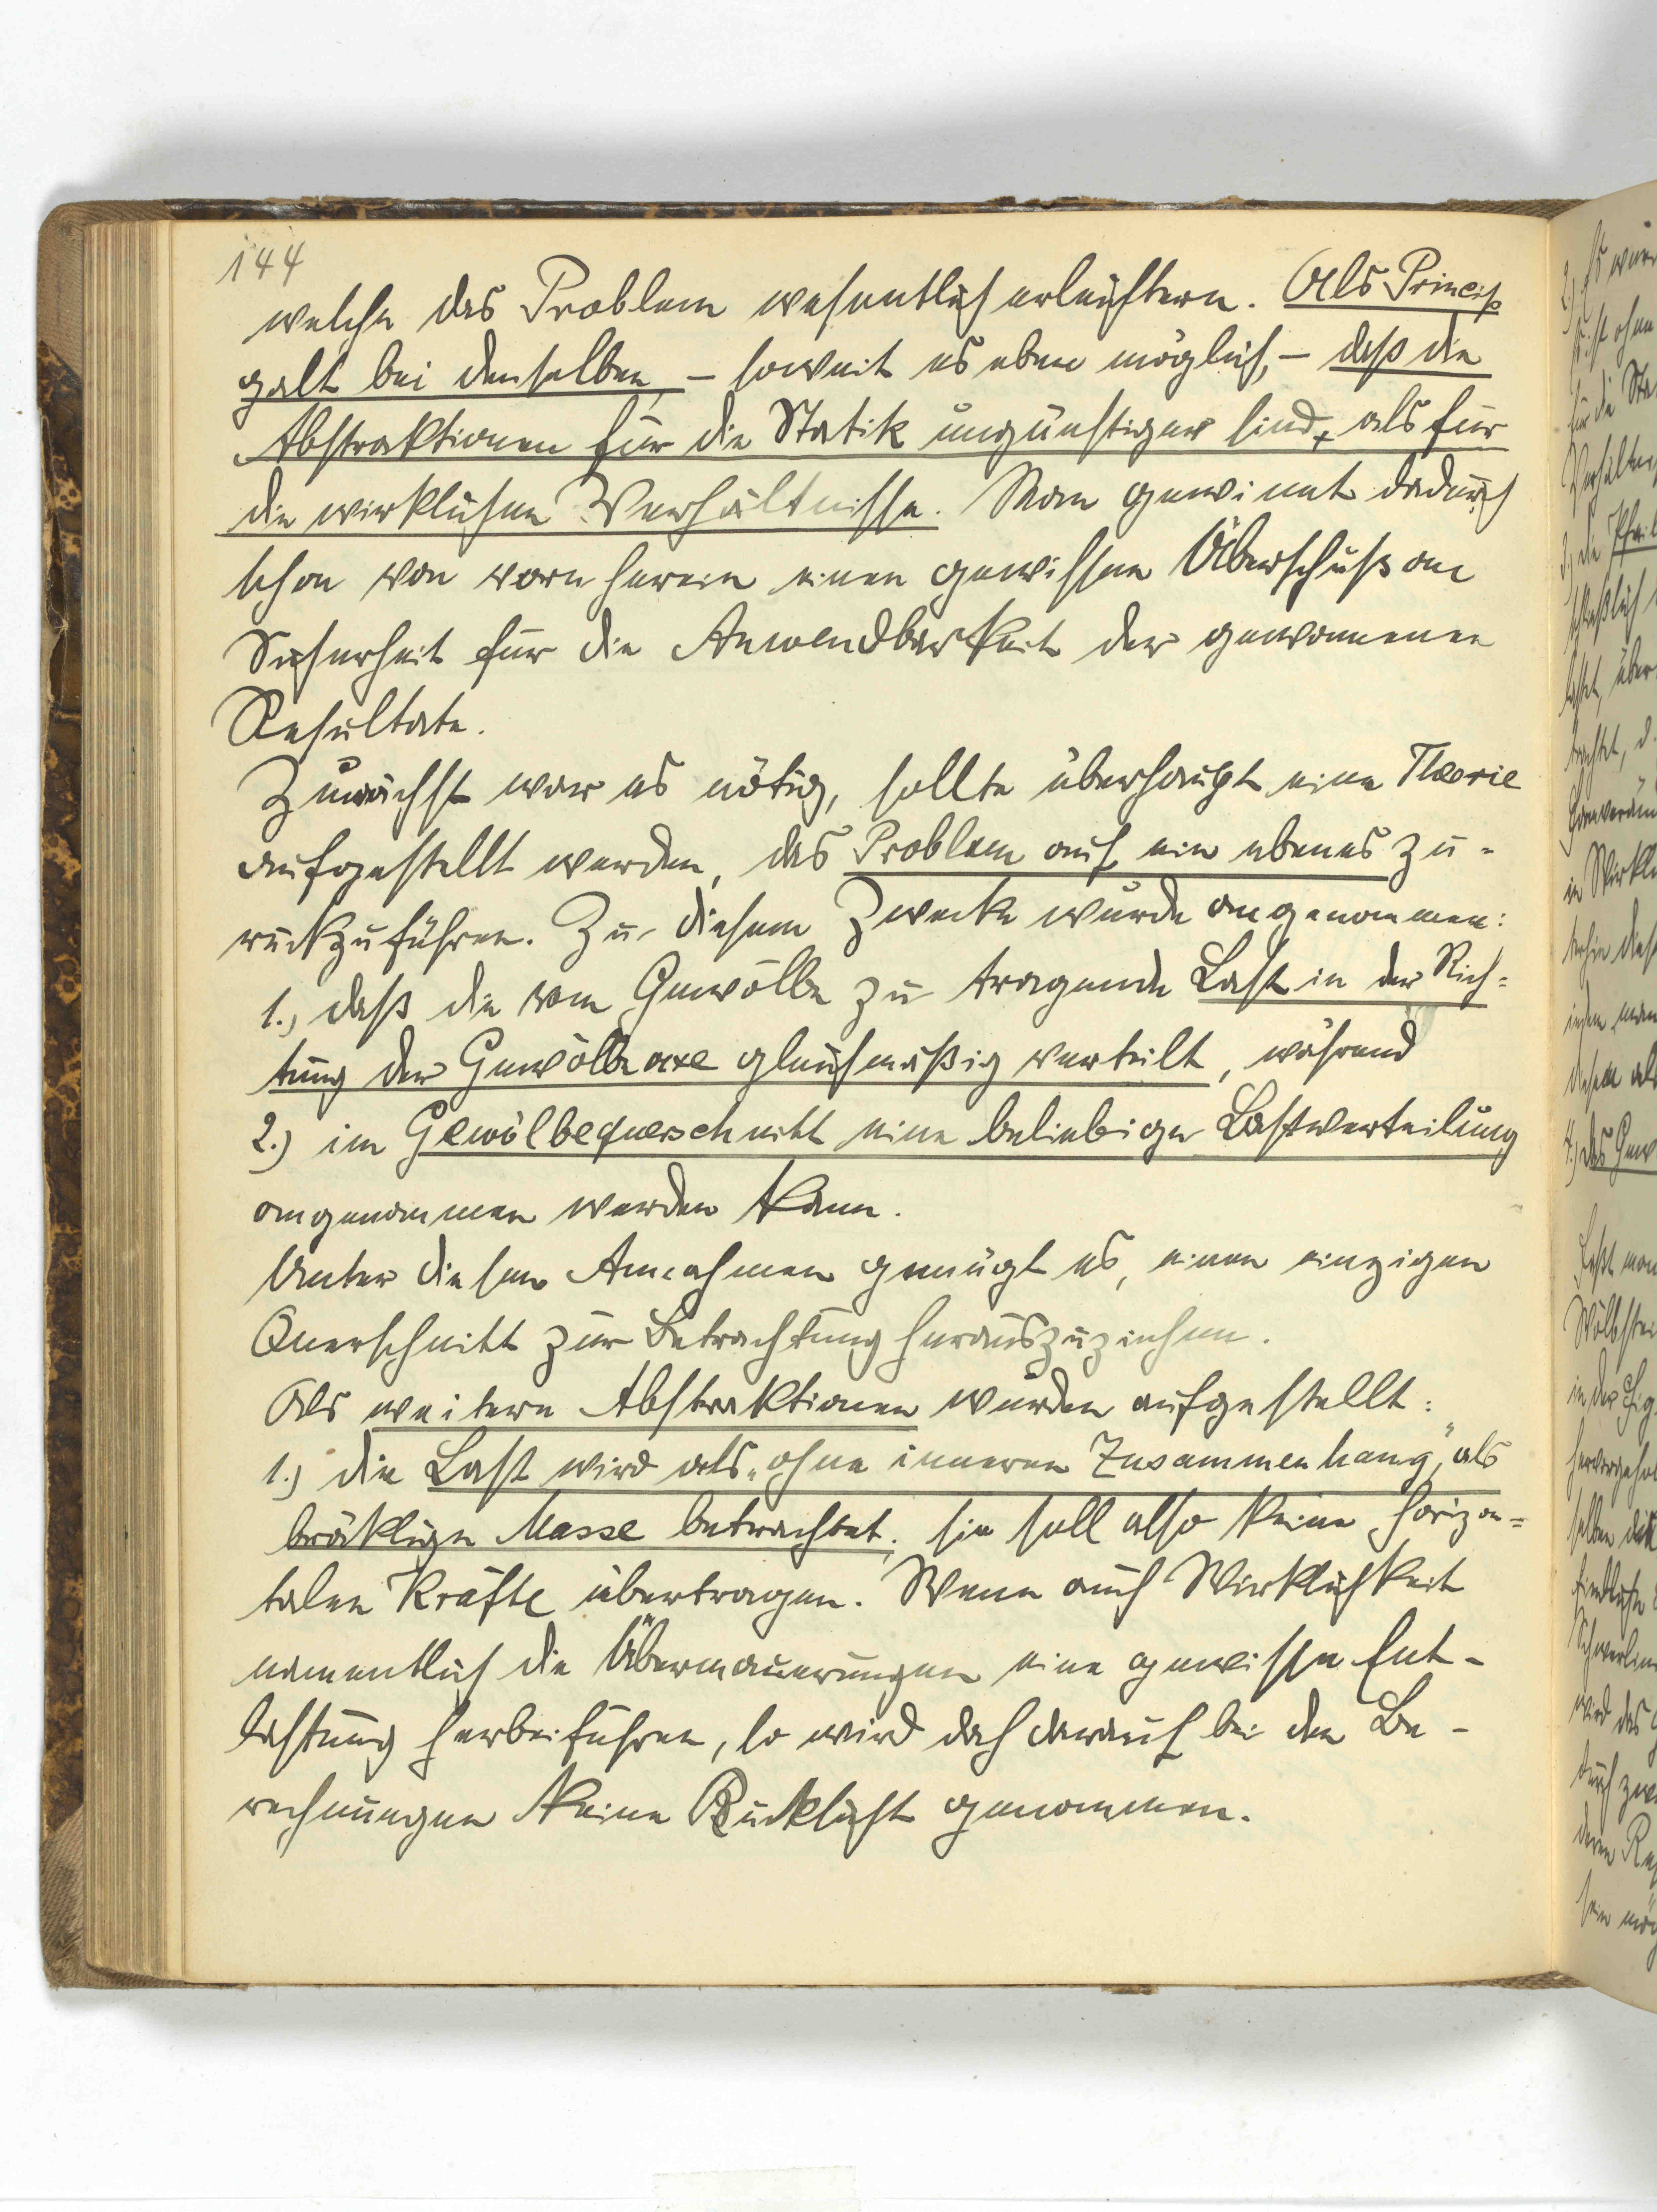 144
welche das Problem wesentlich erleichtern. Als Princip
galt bei denselben, – soweit es eben möglich, – daß die
Abstraktionen für die Statik ungünstiger sind, als für
die wirklichen Verhältnisse. Man gewinnt dadurch
schon von vorn herein einen gewissen Überschuß an
Sicherheit für die Anwendbarkeit der gewonnenen
Resultate.
Zunächst war es nötig, sollte überhaupt eine Theorie
aufgestellt werden, das Problem auf ein ebenes zu-
rückzuführen. Zu diesem Zwecke wurde angenommen:
1.) daß die vom Gewölbe zu tragende Last in der Rich=
tung der Gewölbeaxe gleichmäßig verteilt, während
2.) im Gewölbequerschnitt eine beliebige Lastverteilung
angenommen werden kann.
Unter diesen Annahmen genügt es, einen einzigen
Querschnitt zur Betrachtung herauszuziehen.
Als weitere Abstraktionen wurden aufgestellt:
1.) die Last wird als „ohne inneren Zusammenhang", als
bröklige Masse betrachtet; sie soll also keine horizon=
talen Kräfte übertragen. Wenn auch Wirklichkeit
namentlich die Übermauerungen eine gewisse Ent-
lastung herbeiführen, so wird doch darauf bei den Be-
rechnungen keine Rücksicht genommen.